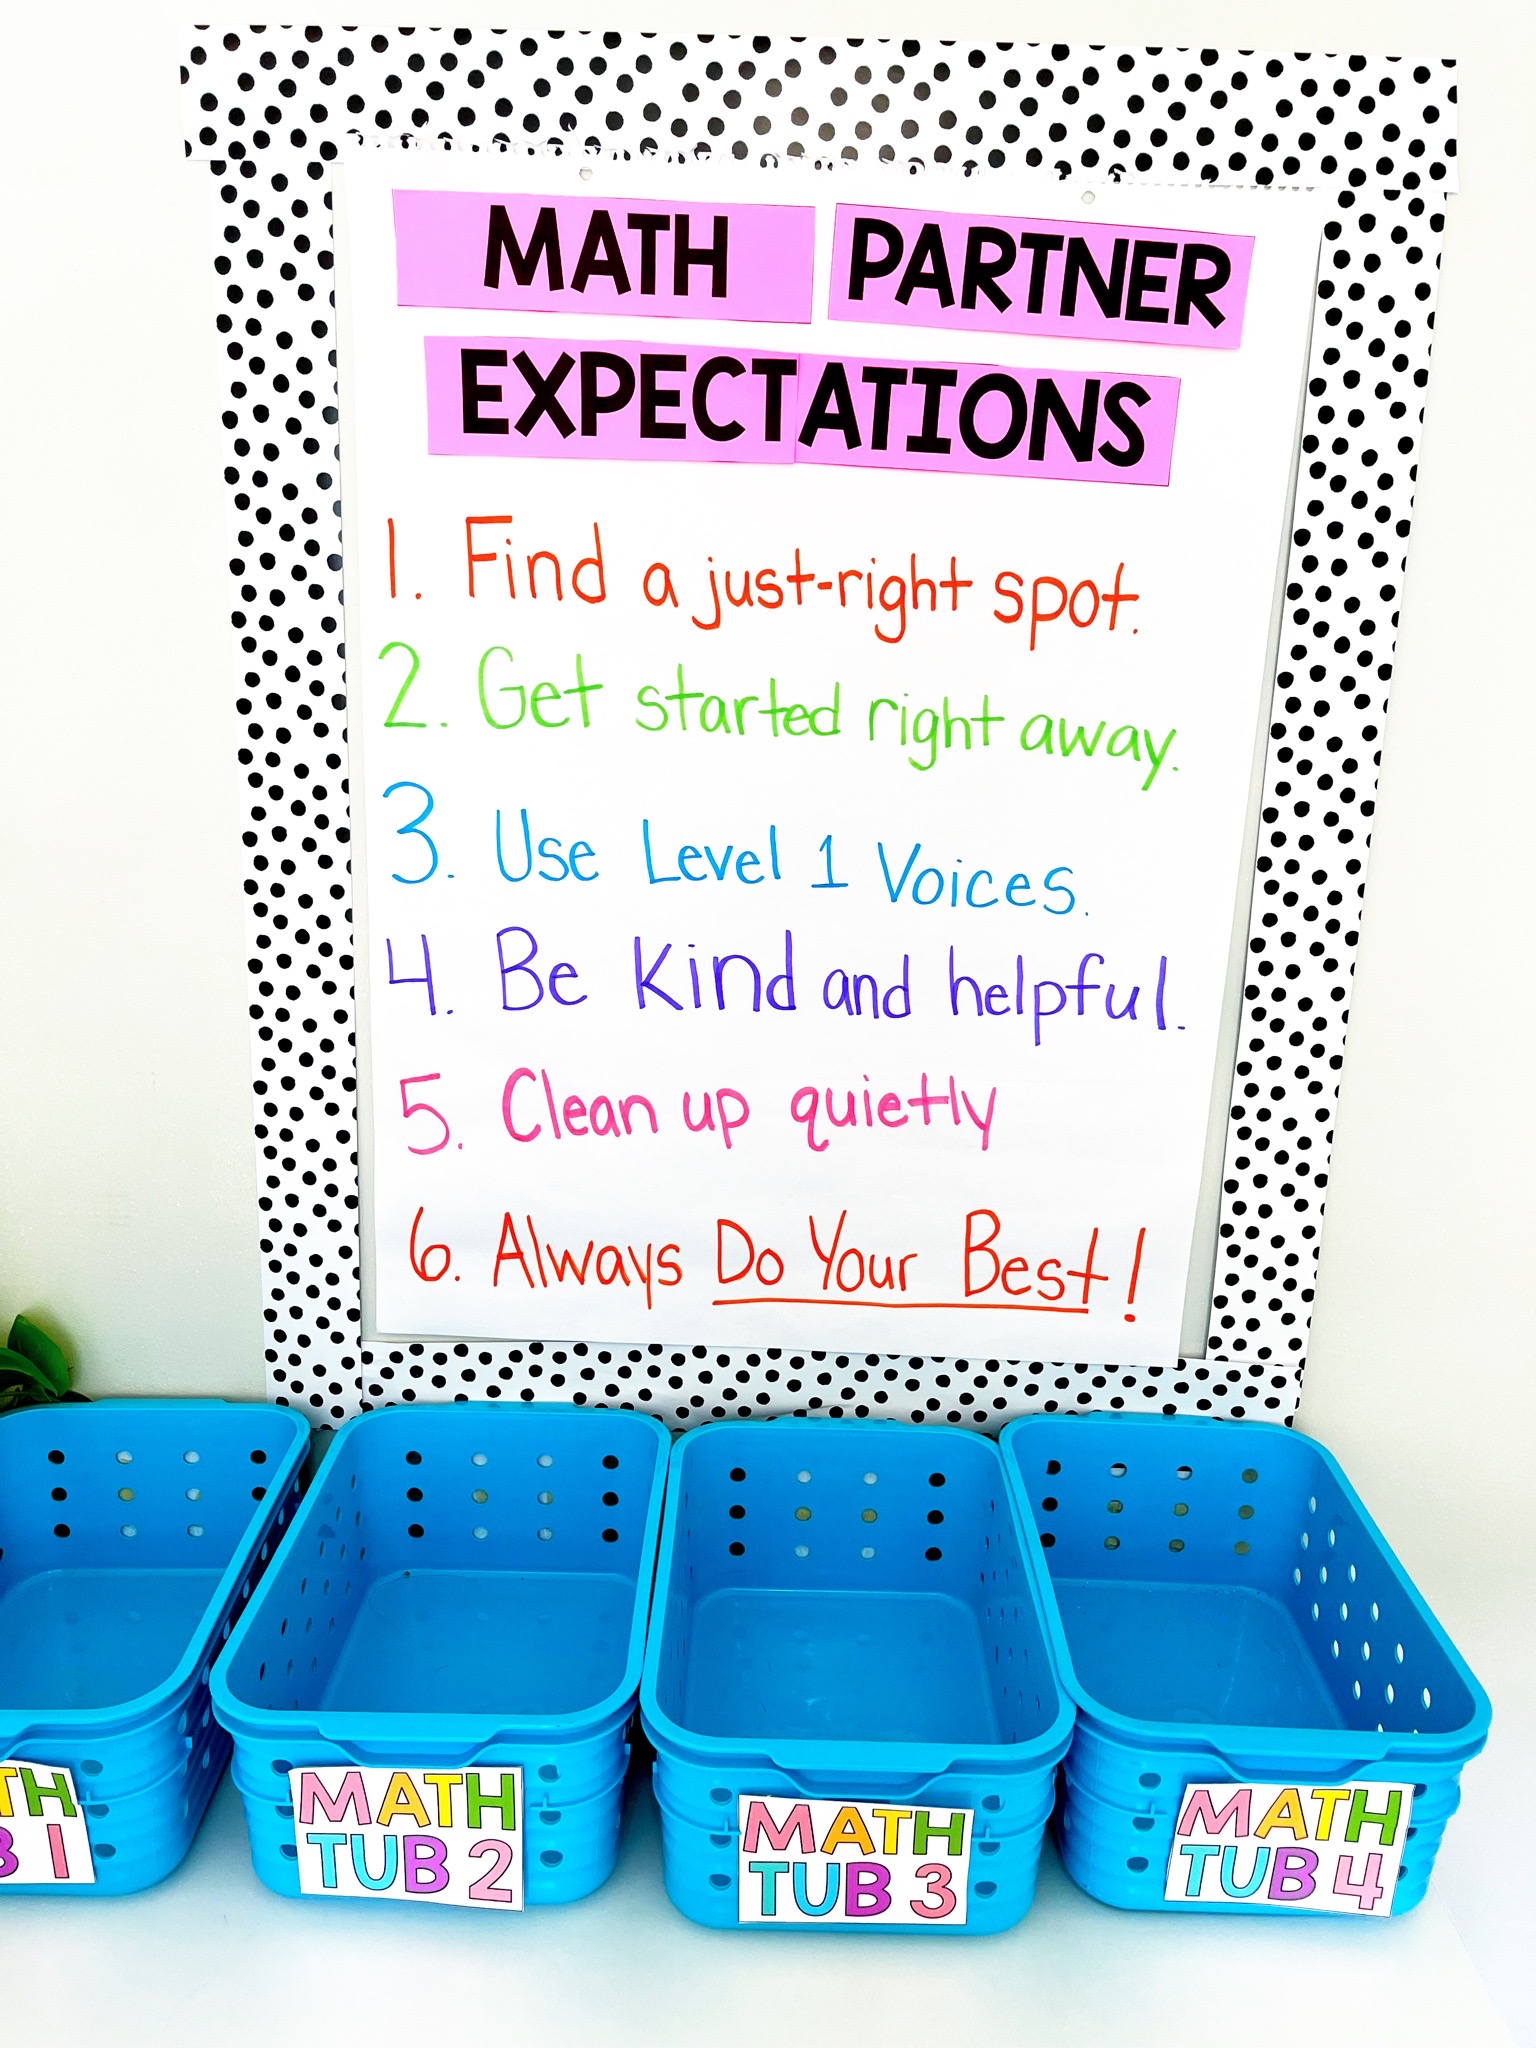 MATH PARTNER
EXPECTATIONS
1. Find a just-right spot.
2. Get started right away.
3. Use Level 1 Voices.
4. Be kind and helpful.
5. Clean up quietly
6. Always Do Your Best!
TH
B 1
MATH
TUB 2
MATH
TUB 3
MATH
TUB 4